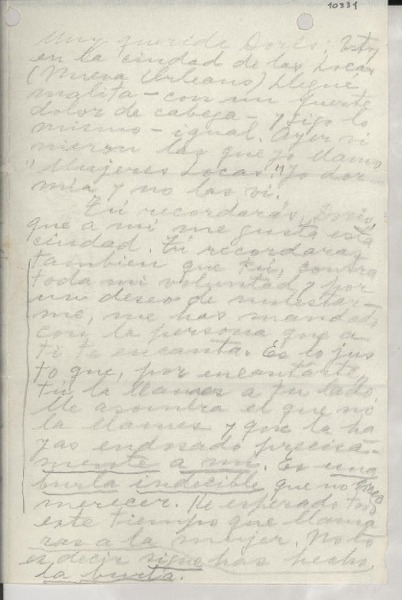 10331
Muy querida Doris: Estoy
en la ciudad de las Locas
(Nueva Orleans) Llegué
malita - con un fuerte
dolor de cabeza - y sigo lo
mismo - igual. Ayer vi
nieron las que yo llamo
"Mujeres Locas." Yo dor
mía y no las vi.
Tú recordarás, Doris,
que a mí me gusta esta
ciudad. Tú recordarás
también que tú, contra
toda mi voluntad y por
un deseo de molestar-
me, me has mandado
con la persona que a
ti te encanta. Es lo jus
to que, por encantarte,
tú la llames a tu lado.
Me asombra el que no
la llames y que la ha
yas endosado precisa-
mente a mí. Es una
burla indecible que no creo
merecer. He esperado todo
este tiempo que llama
ras a la mujer. No lo
es decir sigue has hecho,
la burla.